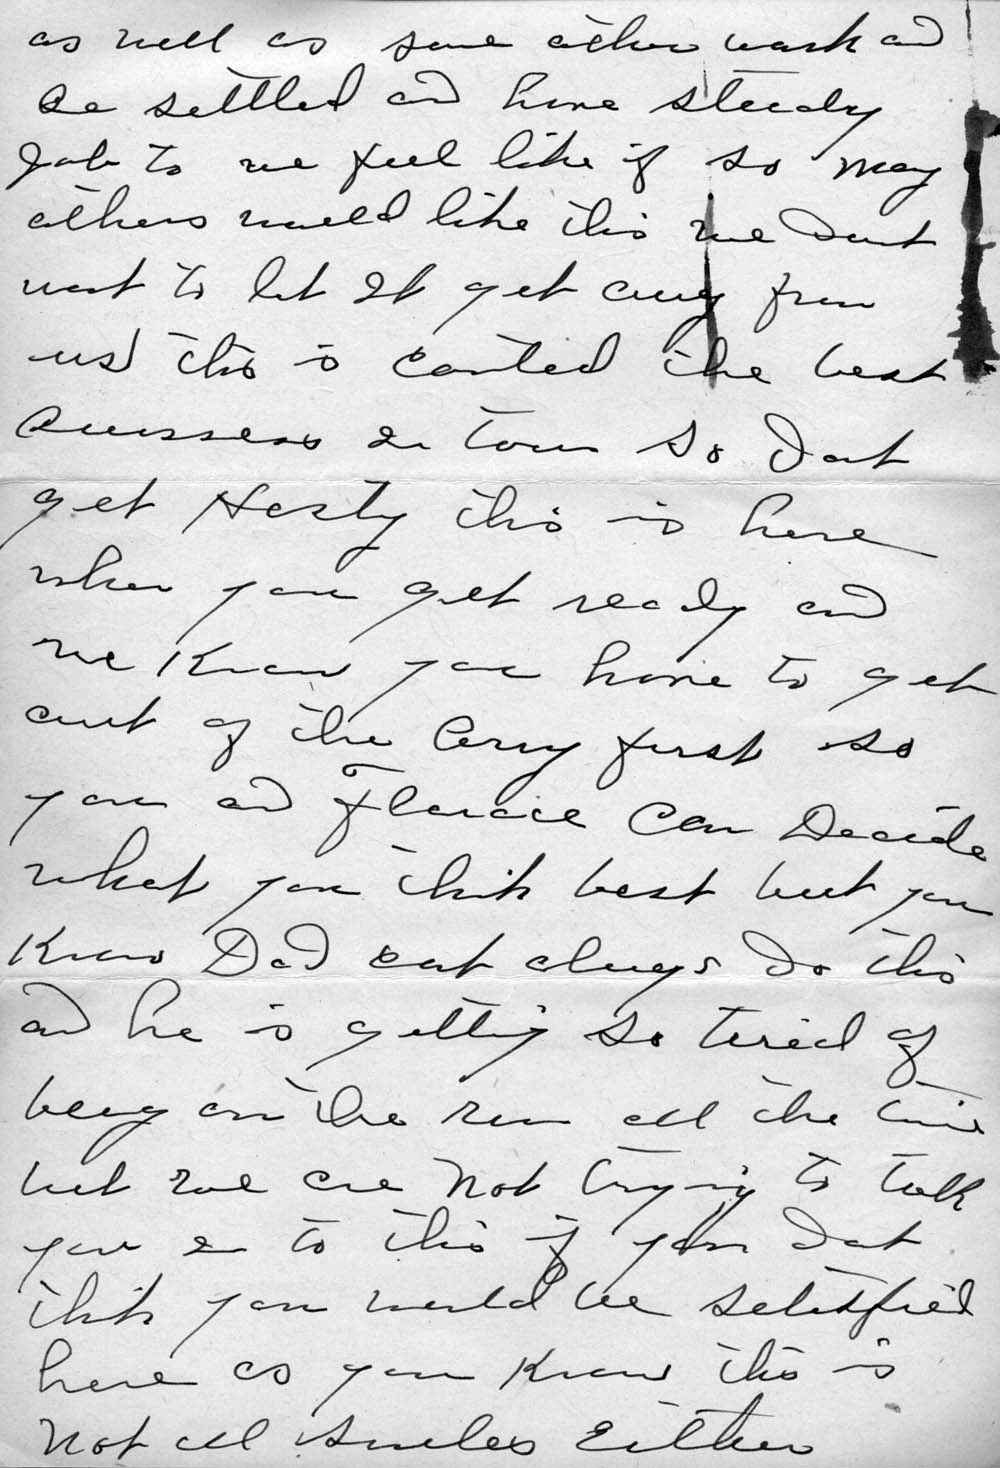 as well as some other work and
be settled and have steady
Job to we feel like if so many
others would like this we dont
want to let It get away from
us this is counted the best
Bussness in town so Dont
get Hasty this is here
when you get ready and
we Know you have to get
out of the Army first so
you and Florace Can Decide
what you think best but you
Know Dad cant always do this
and he is getting so tired of
being on the run all the time
but we are Not trying to talk
you in to this if you dont
think you would be satisfied
here as you Know this is
Not all Smiles Either